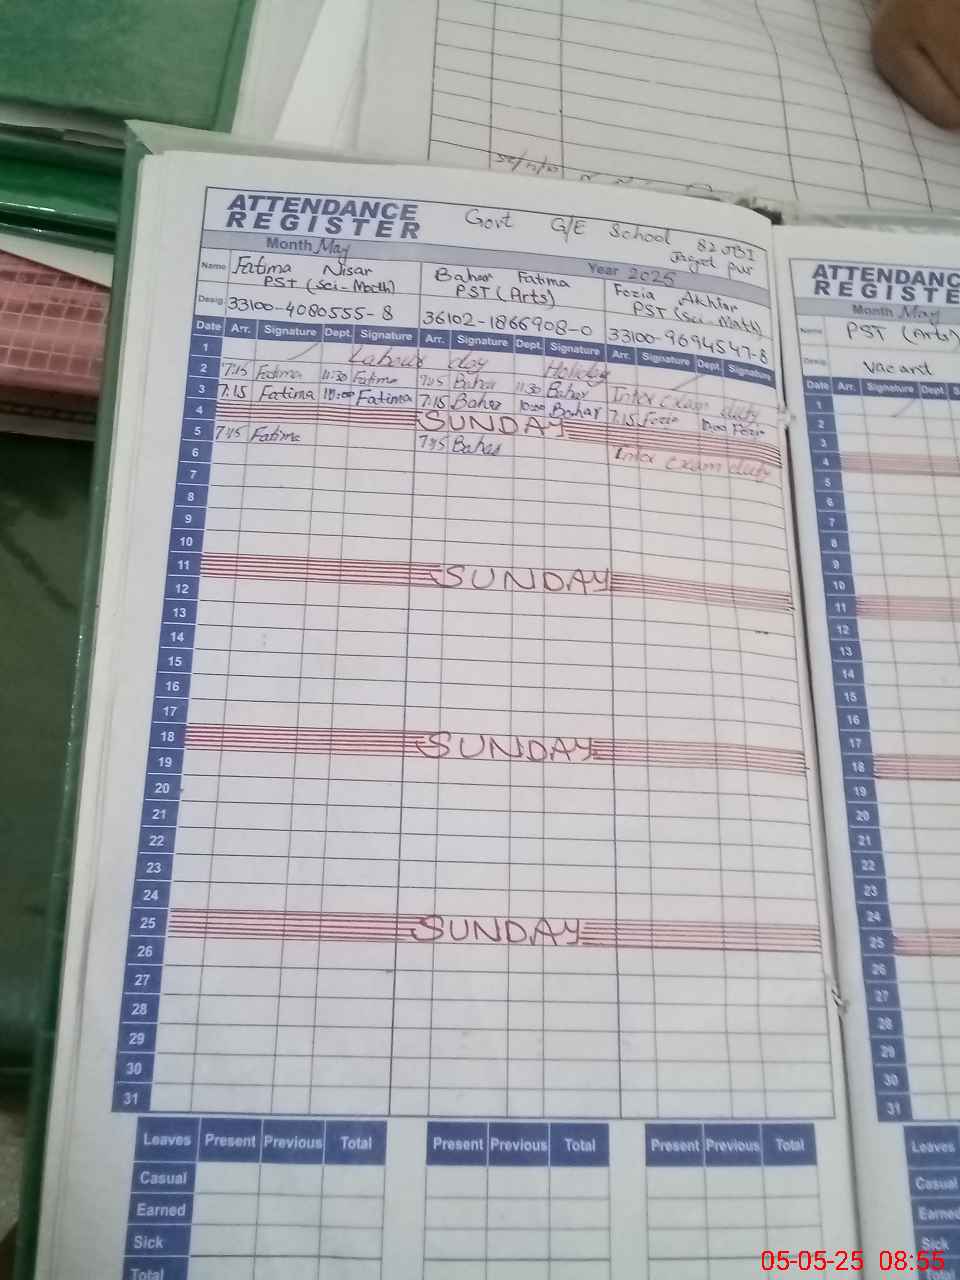 ATTENDANCE
REGISTER
Govt G/E School 82 JBI
Month May
Year 2025
Name Fatima Nisar
PST (Sci-Math)
Bahar Fatima
PST (Arts)
Fozia Akhtar
PST (Sci-Math)
Desig. 33100-4080555-8
36102-1866908-0
33100-9694547-8
Date Arr. Signature Dept. Signature Arr. Signature Dept. Signature Arr. Signature Dept. Signature
1 Labour day Holiday
2 7:15 Fatima 11:30 Fatima 7:15 Bahar 11:30 Bahar Inter exam duty
3 7.15 Fatima 10:00 Fatima 7.15 Bahar 10:00 Bahar 7.15 Fozia 10:00 Fozia
4 SUNDAY
5 7:15 Fatima 7:15 Bahar Inter exam duty
6
7
8
9
10
11 SUNDAY
12
13
14
15
16
17
18 SUNDAY
19
20
21
22
23
24
25 SUNDAY
26
27
28
29
30
31
Leaves Present Previous Total Present Previous Total Present Previous Total
Casual
Earned
Sick
Total
ATTENDANC
REGISTE
Month May
Name PST (Arts)
Desig. Vacant
Date Arr. Signature Dept
1
2
3
4
5
6
7
8
9
10
11
12
13
14
15
16
17
18
19
20
21
22
23
24
25
26
27
28
29
30
31
Leaves
Casual
Earned
Sick
Total
05-05-25 08:55